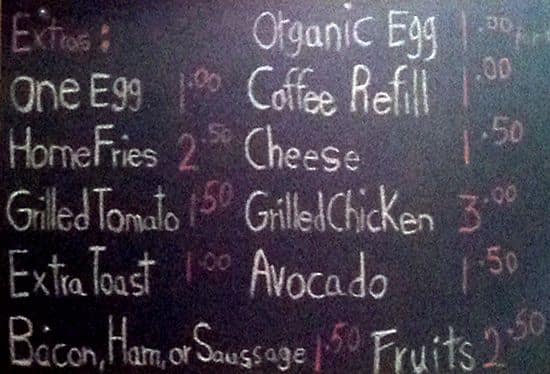 Extras: Organic Egg 1.00
One Egg 1.00 Coffee Refill 1.00
Home Fries 2.50 Cheese 1.50
Grilled Tomato 1.50 Grilled Chicken 3.00
Extra Toast 1.00 Avocado 1.50
Bacon, Ham, or Saussage 1.50 Fruits 2.50